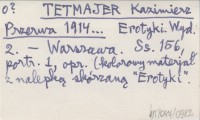 o? TETMAJER Kazimierz
Przerwa 1914... Erotyki. Wyd.
2. — Warszawa. Ss. 156,
portr. 1, opr. (kolorowy materiał
z nalepką skórzaną "Erotyki".